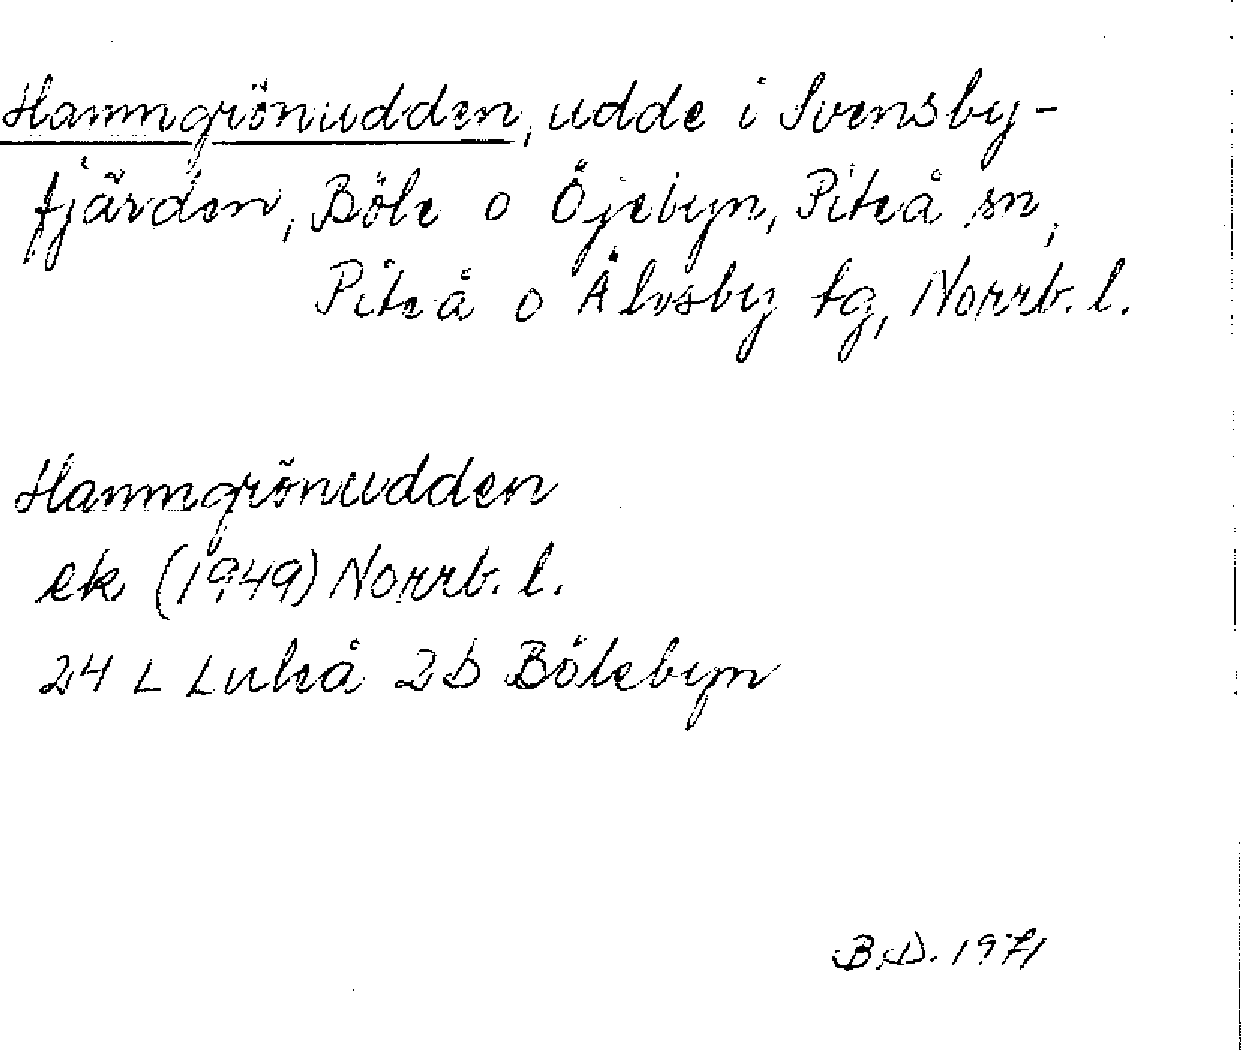 Hamngrönudden, udde i Svensby-
fjärden, Böle o Öjebyn, Piteå sn,
Piteå o Älvsby tg, Norrb. l.
Hamngrönudden
ek (1949) Norrb. l.
24 L Luleå 2b Bölebyn
B.D. 1971